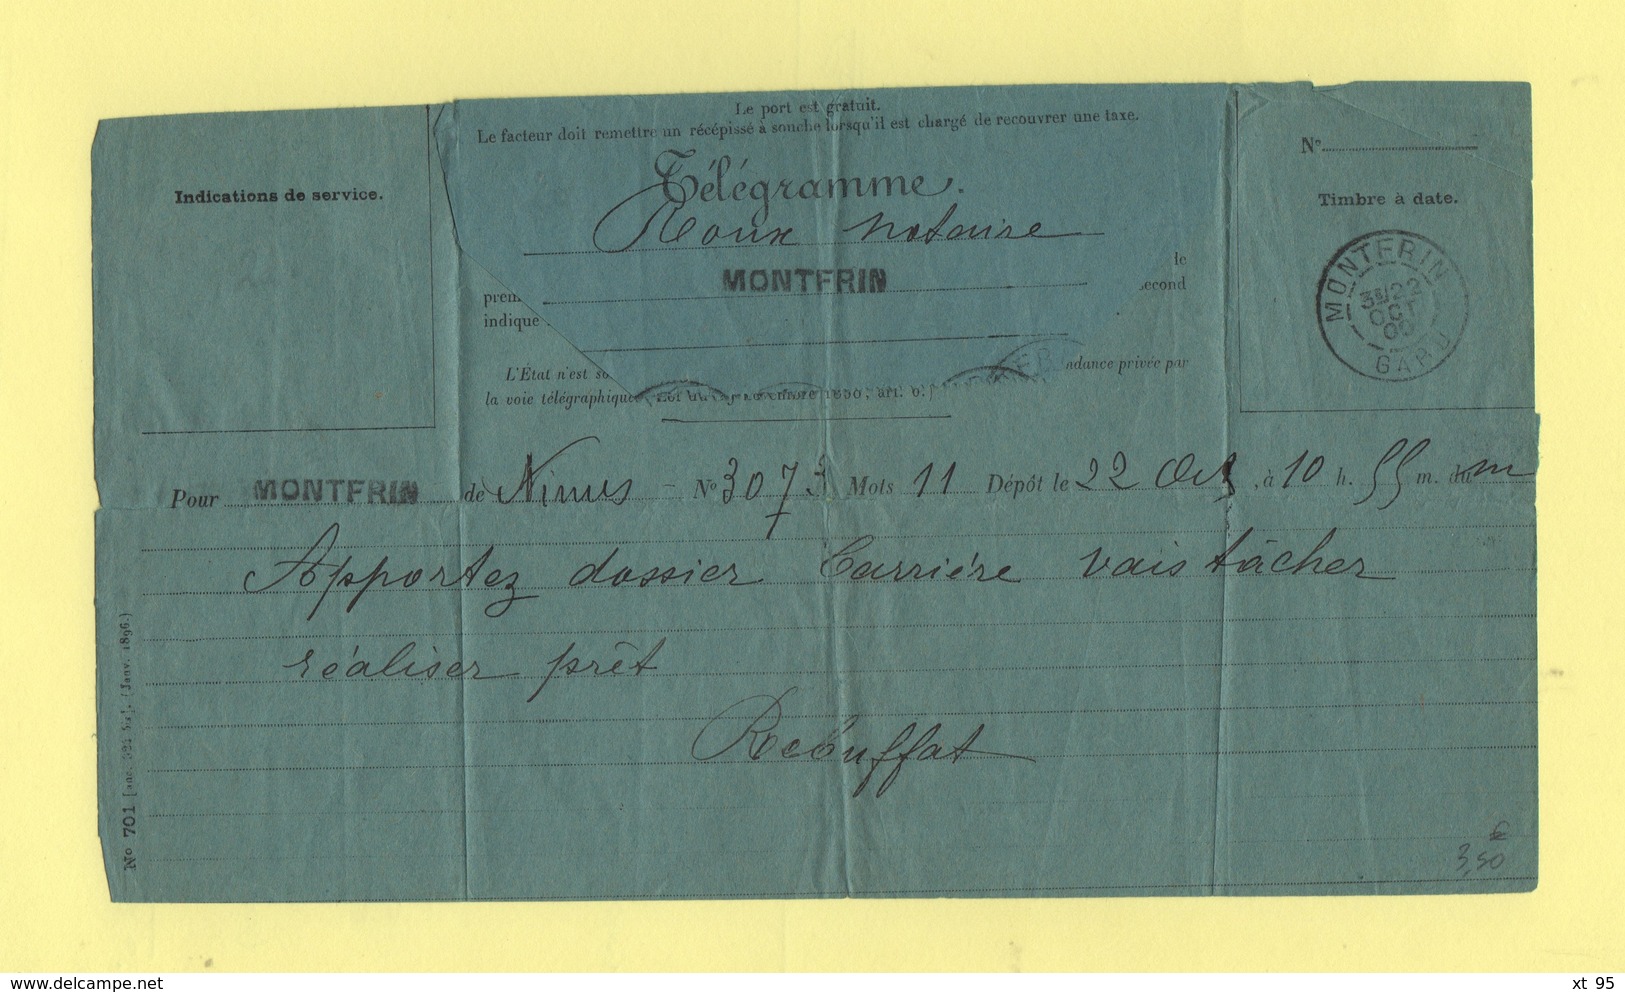 Le port est gratuit.
Le facteur doit remettre un récépissé à souche lorsqu'il est chargé de recouvrer une taxe.
Télégramme.
Roux notaire
MONTFRIN
Indications de service.
N°
Timbre à date.
MONTFRIN
3E 22
OCT
00
GARD
le
prem
second
indique
L'État n'est so
ndance privée par
la voie télégraphique
1850, art. 6.)
Pour MONTFRIN de Nimes - N° 3073 Mots 11 Dépôt le 22 Oct, à 10 h. 55 m. du m
Apportez dossier Carrière vais tâcher
réaliser prêt
Rebuffat
N° 701 (Janv. 1896.)
€
3,50
delcampe.net
xt 95